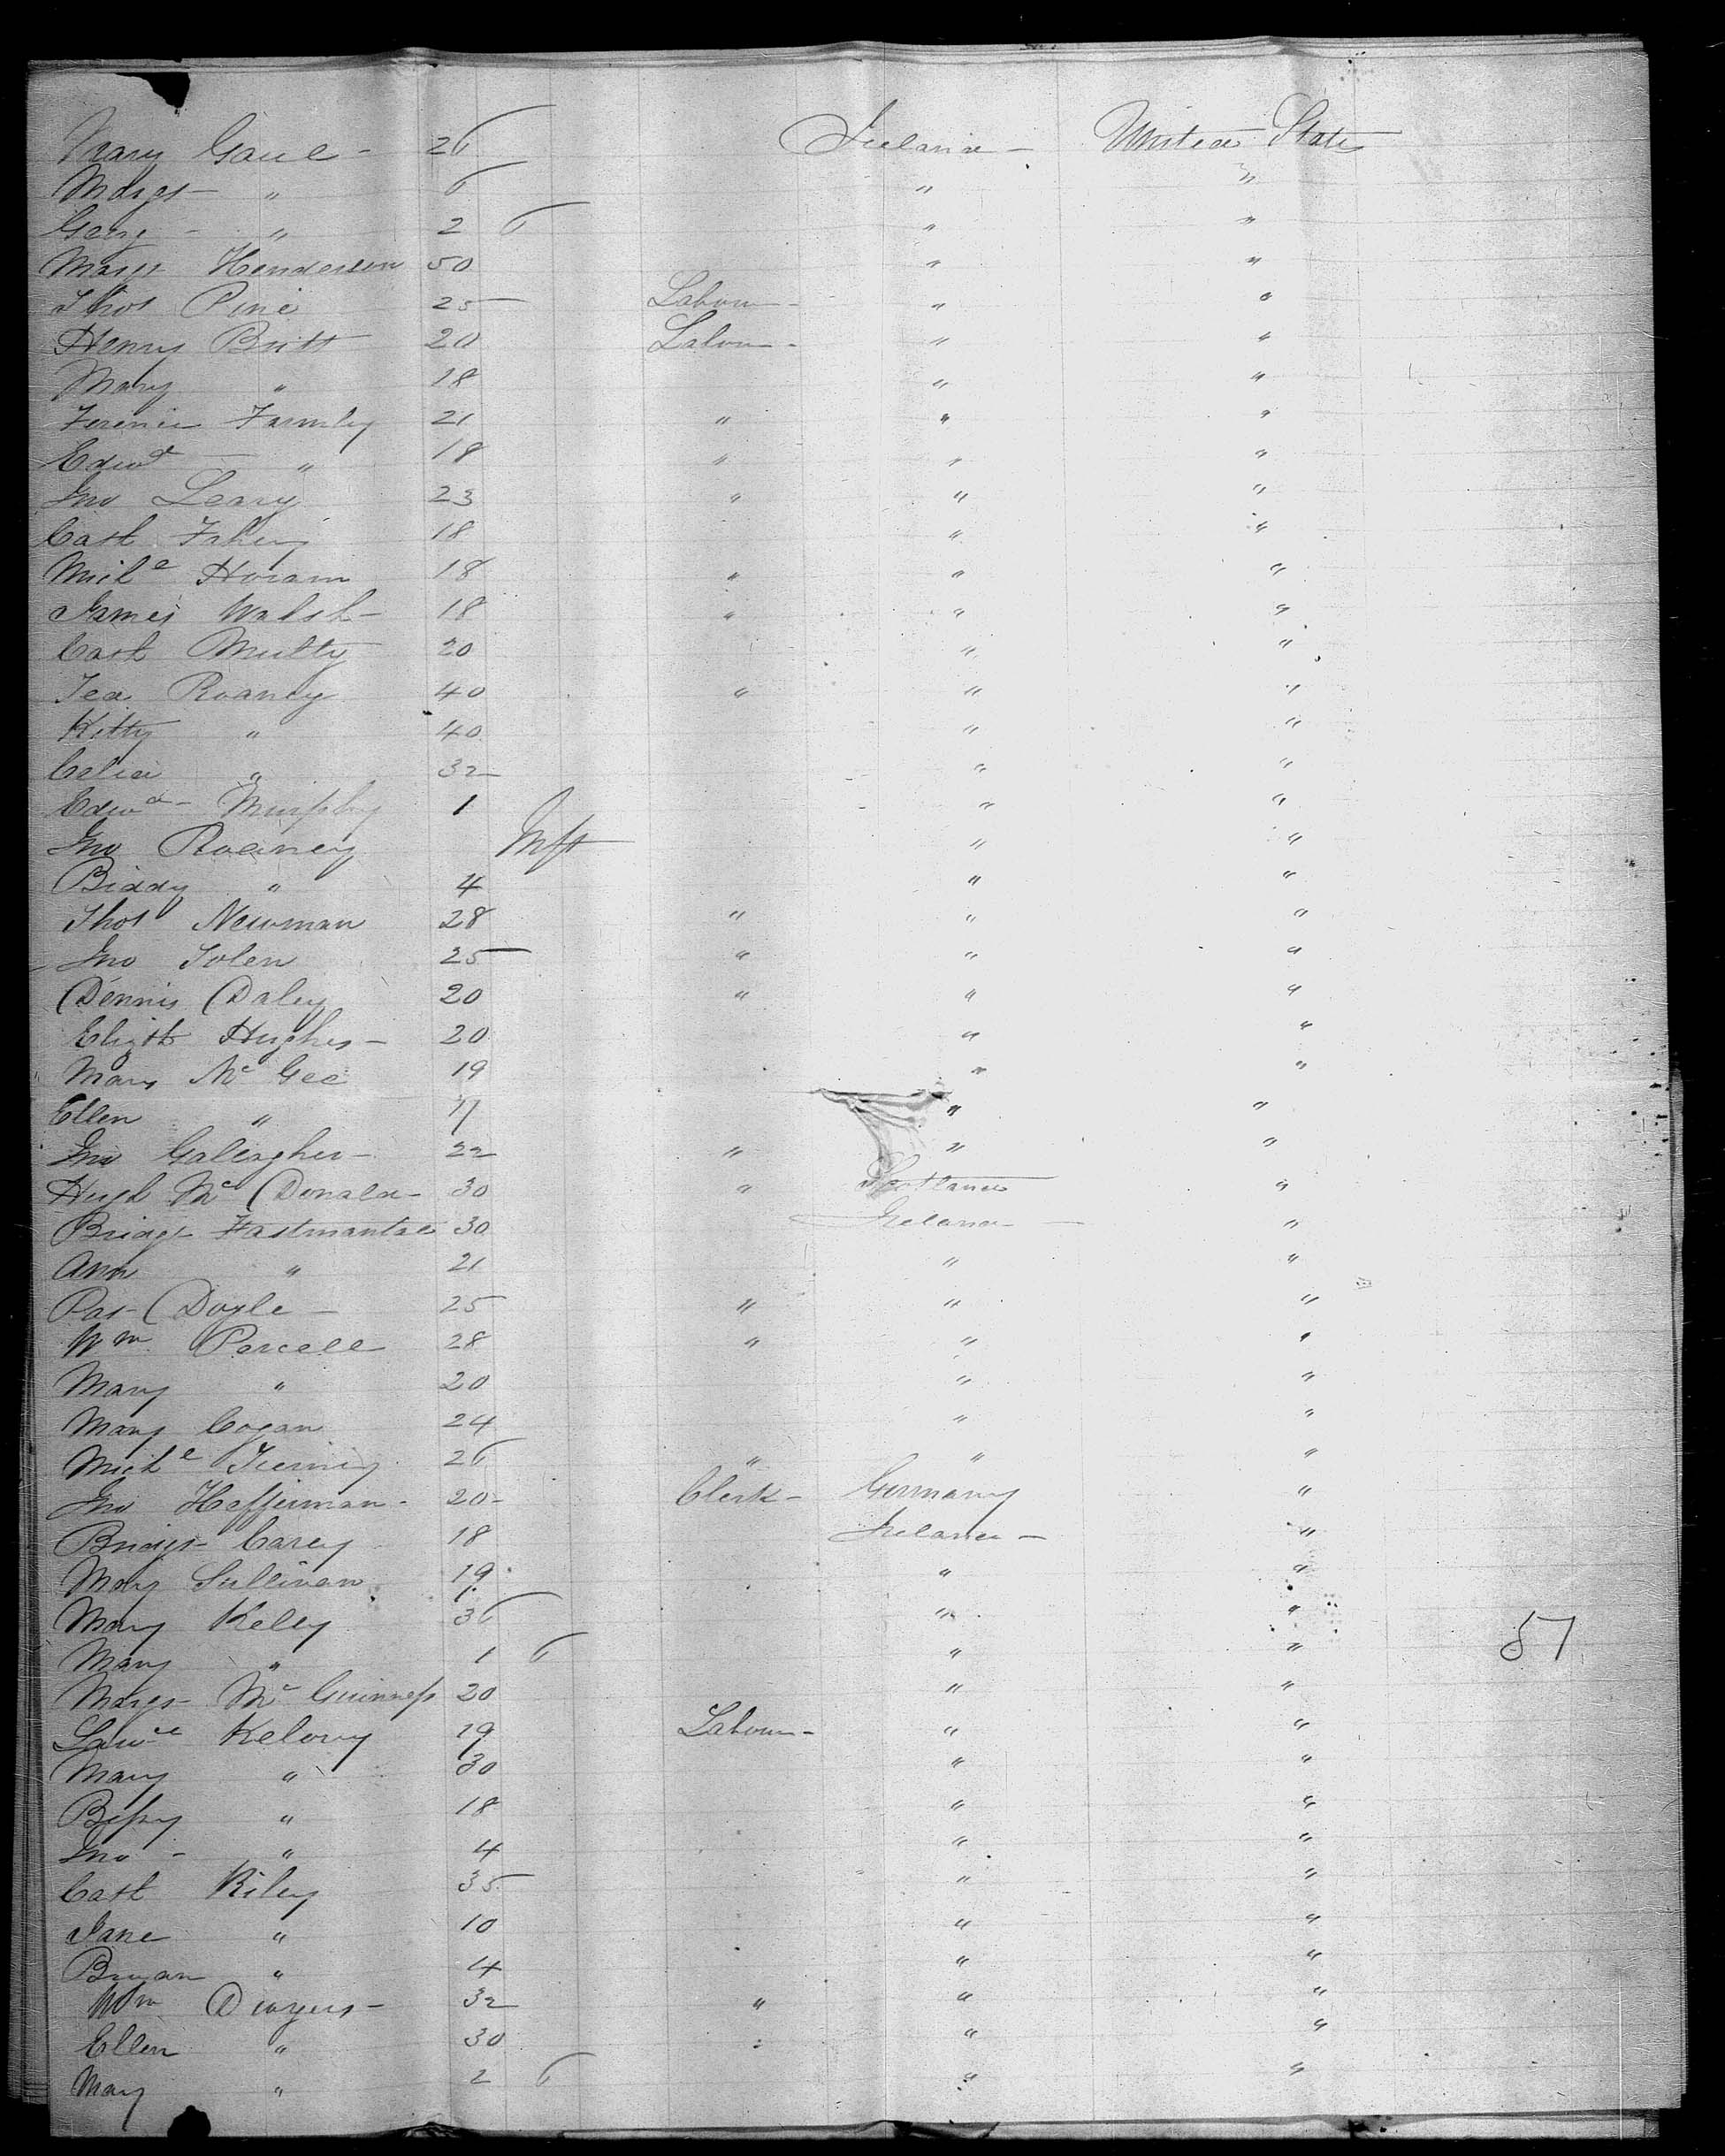 Mary Gaul - 26 Ireland - United States
Margt - " 6 " "
Georg - " 2 6 " "
Margt Henderson 50 " "
Thos Pine 25 Labour - " "
Henry Britt 20 Labour - " "
Mary " 18 " "
Farmley 21 " " "
Edwd - " 18 " " "
Jno Leary 23 " " "
Cath Fahey 18 " "
Michl Horam 18 " " "
James Walsh - 18 " " "
Cath Multy 20 " "
Roaney 40 " " "
Kitty " 40 " "
Celia " 32 " "
Edwd - Murphy 1 " "
Jno Roaney Inft " "
Biddy " 4 " "
Thos Newman 28 " " "
Jno Tolen 25 " " "
Dennis Daley 20 " " "
Elizth Hughes - 20 " "
Mary Mc Gee 19 " "
Ellen " 17 " "
Jno Galeagher - 22 " " "
Hugh Mc Donald - 30 " Scotland "
Bridgt 30 Ireland - "
Ann " 21 " "
Pat Doyle - 25 " " "
Wm Parcell 28 " " "
Mary " 20 " "
Mary Cogan 24 " "
Michl Tierney 26 " " "
Jno Heffernan - 20 - Clerk - Germany "
Bridgt - Carey 18 Ireland - "
Mary Sullivan 19 " "
Mary Kelly 36 " "
Mary " 1 6 " " 57
Margt - Mc Guinness 20 " "
Lawce Kelony 19 Labour - " "
Mary " 30 " "
Bessy " 18 " "
Jno - " 4 " "
Cath Riley 35 " "
Jane " 10 " "
Bryan " 4 " "
Wm Dwyers - 32 " " "
Ellen " 30 : " "
Mary " 2 6 " "